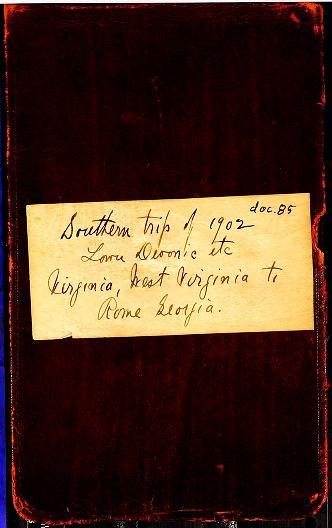 doc. 85
Southern trip of 1902
Lower Devonic etc
Virginia, West Virginia to
Rome Georgia.